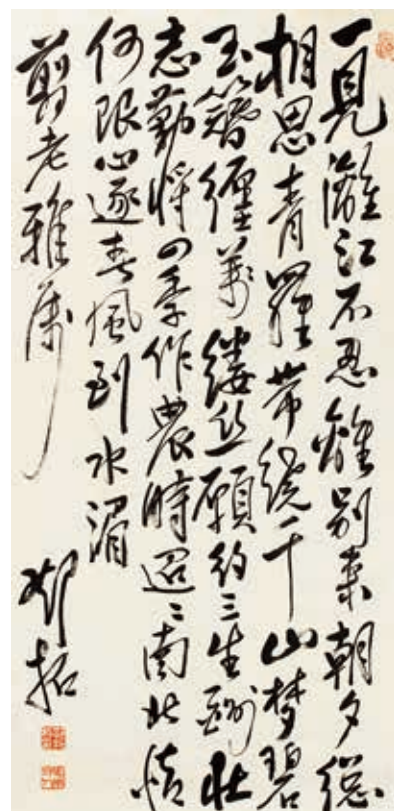 一見灕江不忍離別来朝夕總
相思青羅帶繞千山夢碧
玉簪纏萬縷丝願約三生酬壮
志勤将四季作農時迢〻南北情
何限心逐春風到水湄
翦老雅属
鄧拓